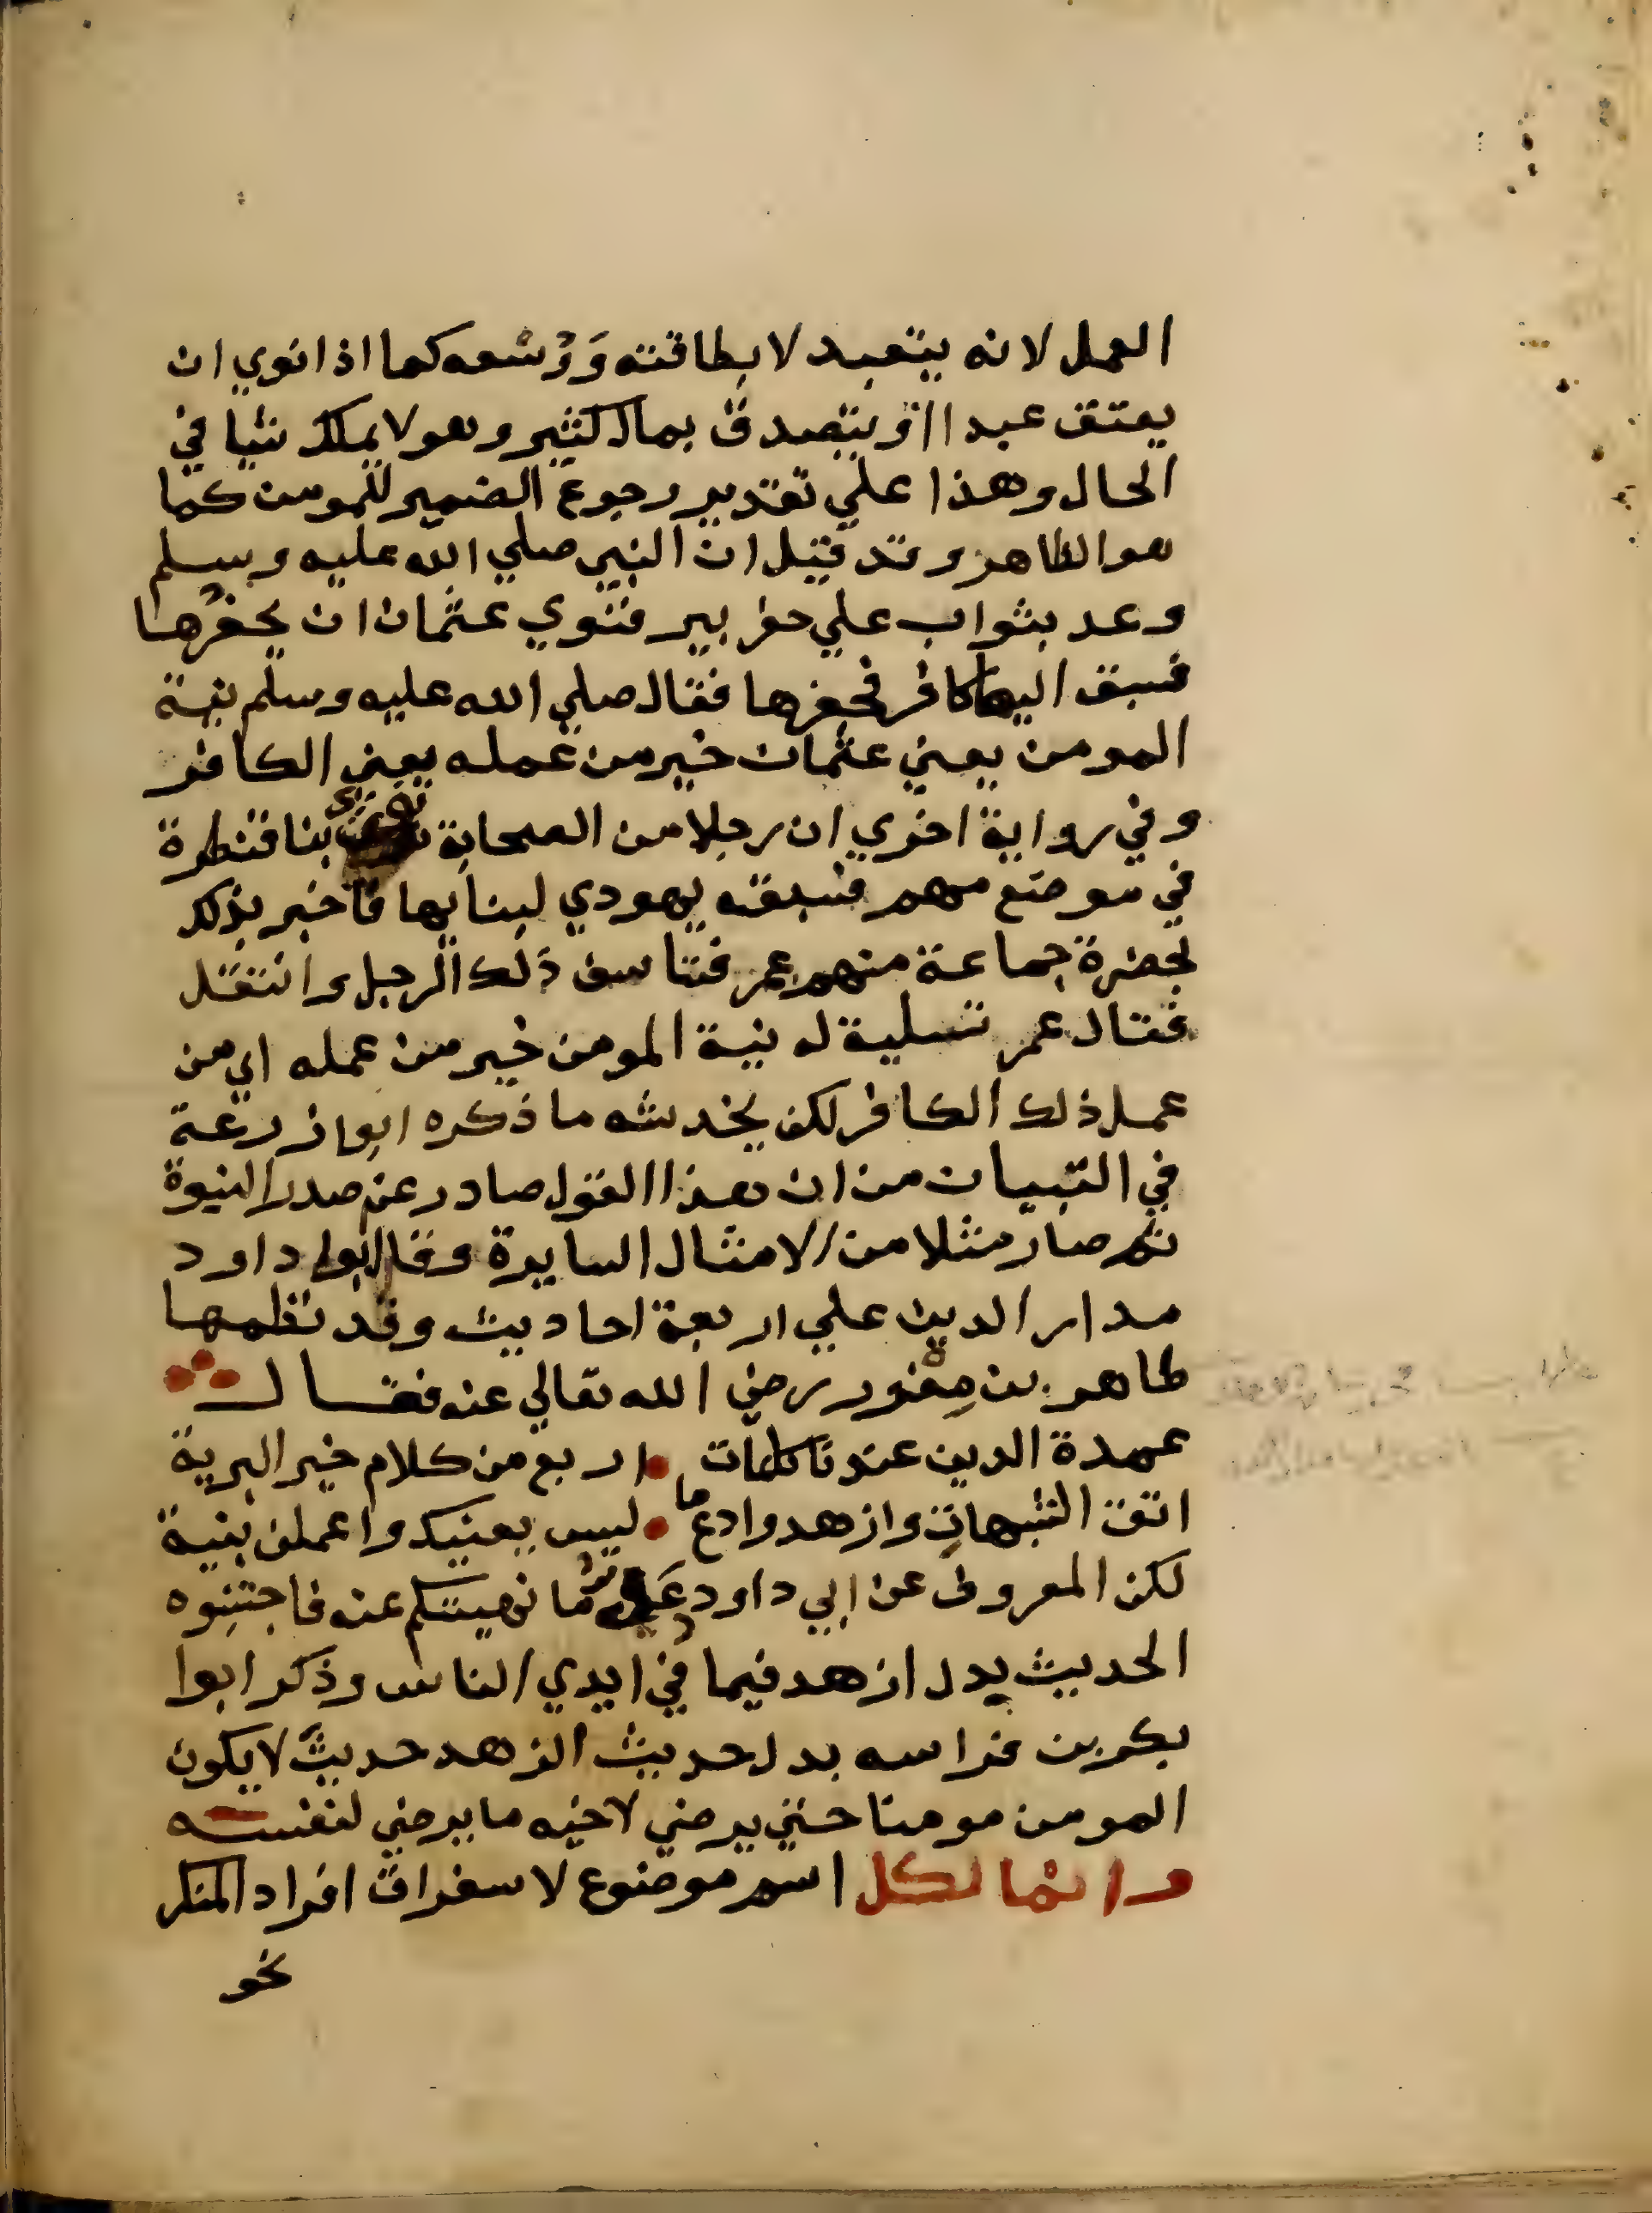 العمل لانه يتعبد لا بطاقته وَوُسْعه كما اذا نوي ان
يعتق عبدا او يتصدق بمال كثير وهو لا يملك شيا في
الحال وهذا علي تقدير رجوع الضمير للمومن كما
هو الظاهر وقد قيل ان النبي صلي الله عليه وسلم
وعد بثواب علي حفر بير فنوي عثمان ان يحفرها
فسبق اليها كافر فحفرها فقال صلي الله عليه وسلم نية
المومن يعني عثمان خير من عمله يعني الكافر
وفي رواية اخري ان رجلا من الصحابة نوي بنا قنطرة
في موضع مهم فسبقه يهودي لبنايها فاخبر بذلك
بحضرة جماعة منهم عمر فتاسف ذلك الرجل وانتقل
فقال عمر تسلية له نية المومن خير من عمله اي من
عمل ذلك الكافر لكن يخدشه ما ذكره ابوا زرعة
في التبيان من ان هذا القول صادر عن صدر النبوة
ثم صار مثلا من الامثال السايرة وقال ابوا داود
مدار الدين علي اربعة احاديث وقد نظمها
طاهر بن مِفوز رضي الله تعالي عنه فقال
عمدة الدين عندنا كلمات اربع من كلام خير البرية
اتق الشبهات وازهد وادع ما ليس يعنيك واعملن بنية
لكن المعروف عن ابي داود عد ما نهيتكم عنه فاجتنبوه
الحديث بدل ازهد فيما في ايدي الناس وذكر ابوا
بكر بن خراسه بدل حديث الزهد حديث لا يكون
المومن مومنا حتي يرضي لاخيه ما يرضي لنفسه
وانما لكل اسم موضوع لاسغراق افراد المنكر
نحو